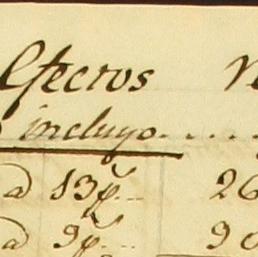 Efectos
incluyo....
a 13 p.. 26
a 9 p... 90